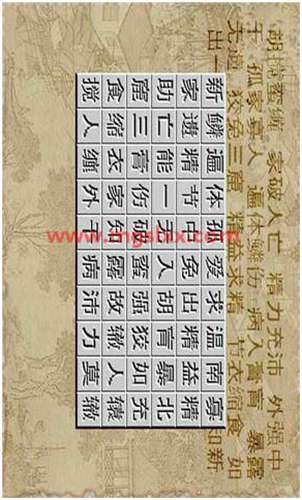 胡搅蛮缠 家破人亡 精力充沛 外强中
干 孤家寡人 遍体鳞伤 病入膏肓 暴露
无遗 狡兔三窟 精益求精 节衣缩食 如
出一
知新
新鳞遍体孤爱求温南寡
家遗精节中兔出精益
助亡能一无入胡肓暴北
窟三膏伤破蛮强狡如充
食缩衣家知露故辙人辕
搅人缠外干病沛力莫辙